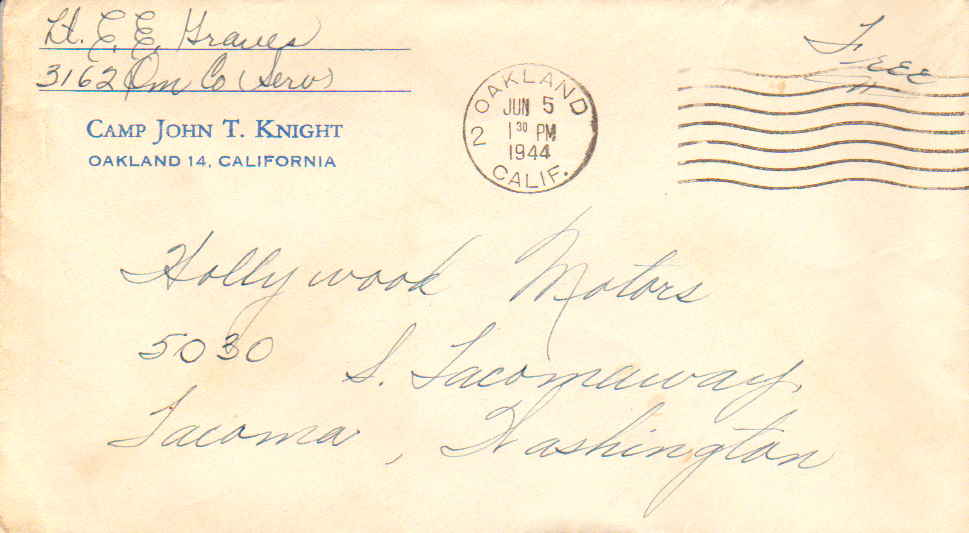 Lt. E. E. Graves
3162 Qm Co (Serv)
CAMP JOHN T. KNIGHT
OAKLAND 14, CALIFORNIA
OAKLAND
JUN 5
1 30 PM
1944
2
CALIF.
Free
Hollywood Motors
5030 S. Tacomaway,
Tacoma, Washington